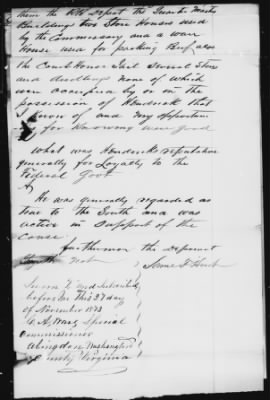 them the RR Depot the Quarter Masters
Buildings two Store Houses used
by the Commissary and a ware
House used for packing Beef, also
the Court House Jail Several Stores
and dwellings none of which
were occupied by or in the
possession of Hendrick that
I know of and my opportunities
for knowing were good
what was Hendricks reputation
generally for Loyalty to the
Federal Govt
A
He was generally regarded as
true to the South and was
active in support of the
cause
further more the deponent
Saith not
James
Sworn to and subscribed
before me this 27 day
of November 1873
Special
Commissioner
Abingdon Washington
County Virginia